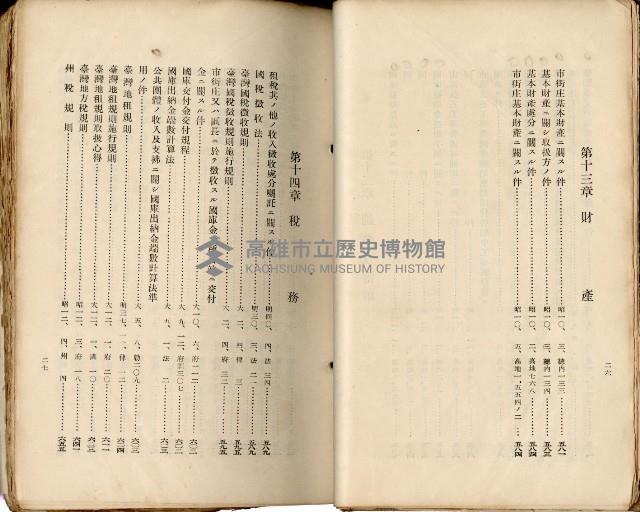 第十三章 財產
市街庄基本財產ニ關スル件……昭一〇、三、總內一三三……五八一
基本財產ニ關シ取扱方ノ件……昭一〇、三、總內一三四……五八四
基本財產處分ニ關スル件……昭一〇、二、高地七六八……五八四
市街庄基本財產ニ關スル件……昭一〇、五、高地一、五五四ノ二……五八四
二六
第十四章 稅務
租稅其ノ他ノ收入徵收處分囑託ニ關スル件……明四〇、四、法三四……五八九
國稅徵收法……明三〇、三、法二一……五八九
臺灣國稅徵收規則……大一二、四、律三……五九五
臺灣國稅徵收規則施行規則……大一二、四、府三二……五九五
市街庄又ハ區長ニ於テ徵收スル國庫金交付
金ニ關スル件
國庫交付金交付規程……大一〇、六、府一一二……六〇二
國庫出納金端數計算法……大五、一、法二……六〇三
公共團體ノ收入及支拂ニ關シ國庫出納金端數計算法準
用ノ件……大五、八、勅二〇九……六〇三
臺灣地租規則……明三七、一一、律一二……六〇四
臺灣地租規則施行規則……府二〇……六一一
臺灣地租規則取扱心得……訓一〇……六二三
臺灣地方稅規則……府一八……六四一
州稅規則……昭一二、四、州四……六五五
二七
高雄市立歷史博物館
KAOHSIUNG MUSEUM OF HISTORY